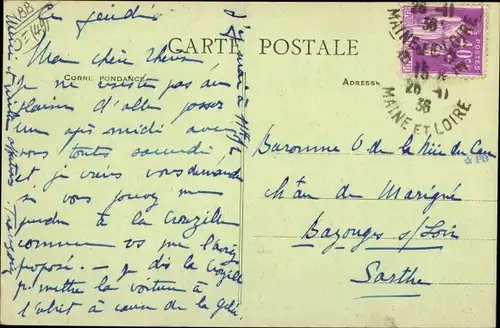 Ce jeudi
CARTE POSTALE
CORRESPONDANCE
ADRESSE
Mon cher
Je ne résiste pas au
plaisir d'aller passer
un après midi avec
vous tous samedi
et je viens vous demander
si vous pouvez me
prendre à la Crozille
comme vs me l'aviez
proposé. — Je dis la Crozille
pr mettre la voiture à
l'abri à cause de la gelée
Baronne V. de la
Chau de Marigné
Bazouges s/Loir
Sarthe
MAINE ET LOIRE
15
26 -11
36
MAINE ET LOIRE
POSTES
40c
☆ PB